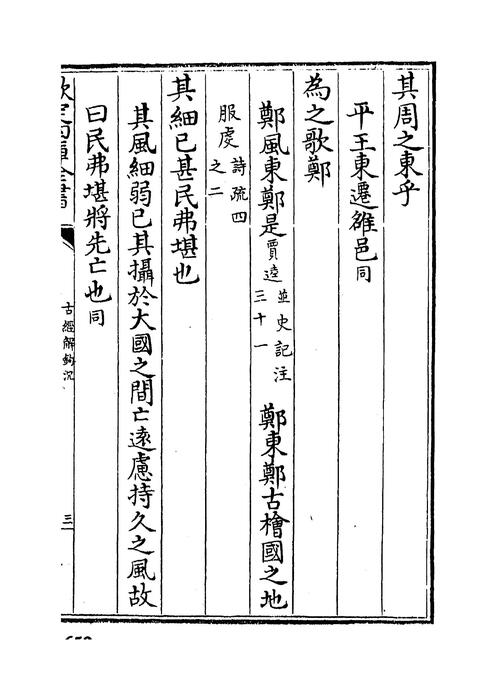 其周之東乎
平王東遷雒邑同
為之歌鄭
鄭風東鄭是賈逵並史記注三十一鄭東鄭古檜國之地
服虔詩疏四之二
其細已甚民弗堪也
其風細弱已其攝於大國之間亡遠慮持久之風故
曰民弗堪將先亡也同
欽定四庫全書
古經解鉤沉
三